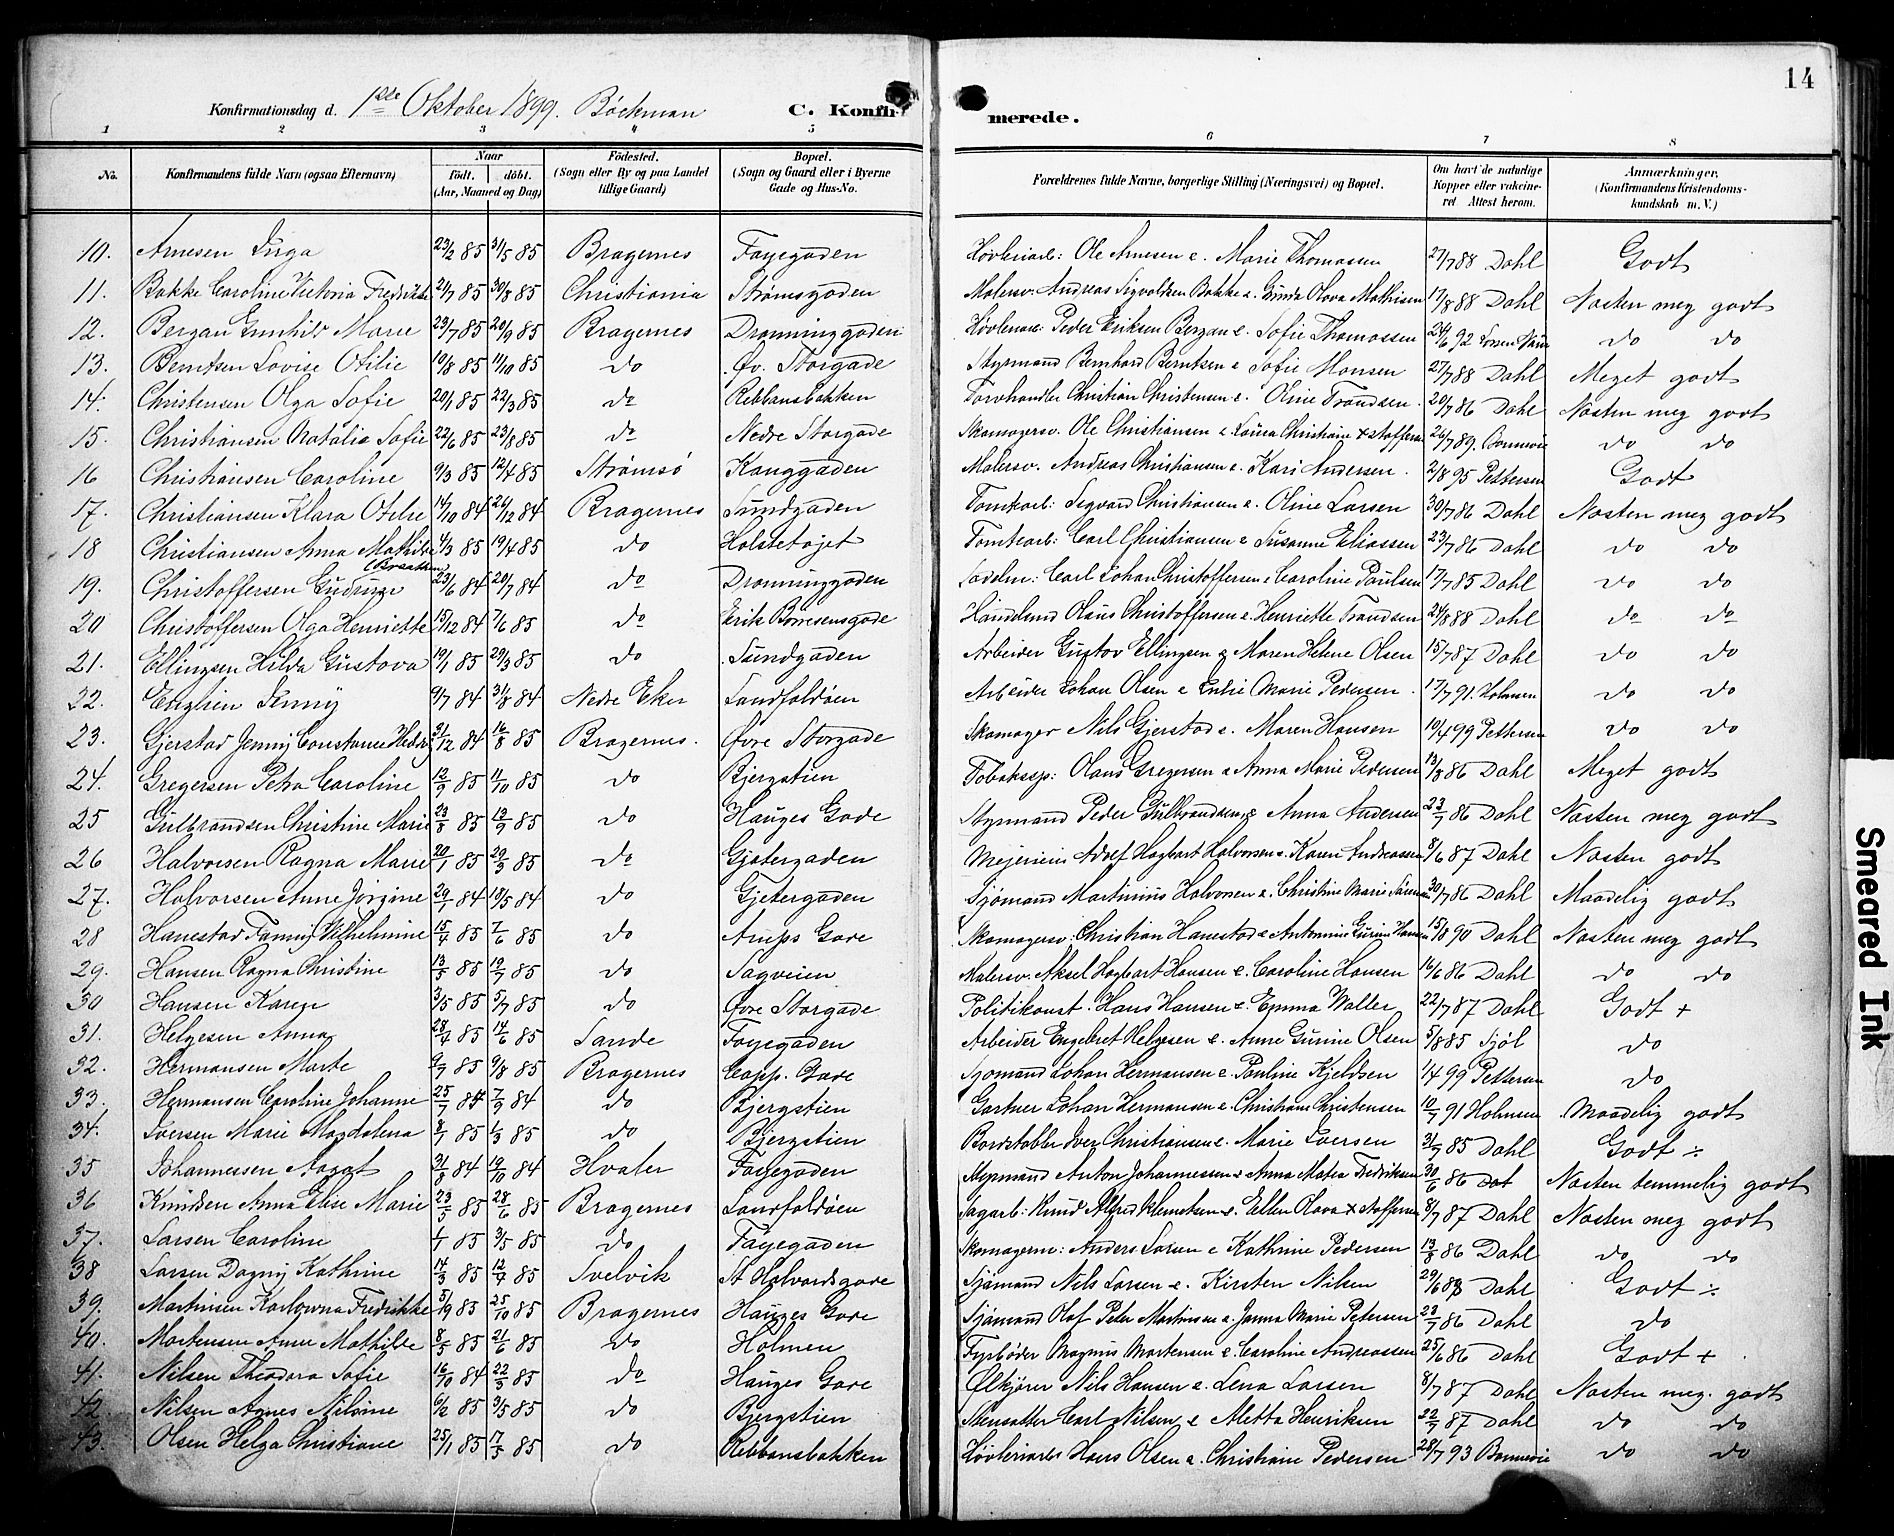 14
Konfirmationsdag d. 1ste Oktober 1899. Böckman C. Konfirmerede.
1 2 3 4 5 6 7 8
No. Konfirmandens fulde Navn (ogsaa Efternavn) Naar födt. döbt. (Aar, Maaned og Dag) Födested. (Sogn eller By og paa Landet tillige Gaard) Bopæl. (Sogn og Gaard eller i Byerne Gade og Hus-No. Forældrenes fulde Navne, borgerlige Stilling (Næringsvei) og Bopæl. Om havt de naturlige Kopper eller vakcineret Attest herom. Anmærkninger. (Konfirmandens Kristendomskundskab m. V.)
10. Arnesen Inga 23/2 85 31/5 85 Bragernes Fayegaden Høvleriarb: Ole Arnesen e. Marie Thomassen 27/7 88 Dahl Godt
11. Bakke Caroline Victoria Fredrikke 21/7 85 30/8 85 Christiania Strømsgaden Malersv. Andreas Sigvoldsen Bakke e. Gunda Olava Mathisen 17/8 88 Dahl Næsten meg godt
12. Bergan Gunhild Marie 23/7 85 20/9 85 Bragernes Dronninggaden Høvleriarb: Peder Eriksen Bergan e. Sofie Thomassen 24/6 92 do do
13. Berntsen Lovise Otilie 19/8 85 11/10 85 do Øv. Storgade Styrmand Bernhard Berntsen e Sofie Monsen 27/7 88 Dahl Meget godt
14. Christensen Olga Sofie 20/1 85 22/3 85 do Rebbansbakken Torvhandler Christian Christensen e. Oline Trondsen. 20/7 86 Dahl Næsten meg godt
15. Christiansen Natalia Sofie 22/6 85 23/8 85 do Nedre Storgade Skomagersv. Ole Christiansen e Laura Christiane Kristoffersen 26/7 89. Bonnevie do do
16 Christiansen Caroline 9/3 85 12/4 85 Strømsø Konggaden Malersv. Andreas Christiansen e. Kari Andersen. 2/8 95 Pettersen Godt
17. Christiansen Klara Otilie 14/10 84 26/12 84 Bragernes Sundgaden Tomtearb: Sigvard Christiansen e. Oline Larsen 30/7 86 Dahl Næsten meg godt
18 Christiansen Anna Mathilde 4/3 85 19/4 85 do Holstetøjet Tomtearb: Carl Christiansen e Susanne Eliassen 23/7 86 Dahl do do
19. Christoffersen Gudrun 23/6 84 20/7 84 do Dronninggaden Sadelm: Carl Johan Christoffersen e Caroline Paulsen 17/7 85 Dahl do do
20 Christoffersen Olga Henriette 15/12 84 7/6 85 do Erik Børresensgade Handelsmd Olaus Christoffersen e Henriette Trondsen 24/8 88 Dahl do do
21. Ellingsen Hilda Gustava 19/1 85 29/3 85 do Sundgaden Arbeider Gustav Ellingsen e Maren Helene Olsen 15/7 87 Dahl do do
22. Jenny 9/7 84 31/8 84 Nedre Eker Landfaldøen Arbeider Johan Olsen e Marie Pedersen. 17/7 91. Holmsen do do
23. Gjerstad Jenny Constance 31/12 84 16/8 85 Bragernes. Øvre Storgade Skomager Nils Gjerstad e. Maren Hansen 10/4 99 Pettersen do do
24. Gregersen Petra Caroline 12/9 85 11/10 85 do Bjergstien Tobakssp: Olaus Gregersen e Anna Marie Pedersen 13/8 86 Dahl Meget godt
25 Gulbrandsen Christine Marie 23/8 85 13/9 85 do Hauges Gade Styrmand Peder Gulbrandsen e Anna Andersen 23/7 86 Dahl Næsten meg godt
26 Halvorsen Ragna Marie 20/1 85 29/3 85 do Gjetergaden Mejerieier Adolf Hagbart Halvorsen e. Karen Andreassen 8/6 87 Dahl Næsten godt
27. Halvorsen Anne Jorgine 29/1 84 18/5 84 do Gjetergaden Sjømand Martinius Halvorsen e. Christine Marie Sørensen 30/7 86 Dahl Maadelig godt
28 Hanestad Fanny Vilhelmine 15/4 85 7/6 85 do Arups Gade Skomagersv: Christian Hanestad e Antonnine Hansen 15/8 90 Dahl Næsten meg godt
29. Hansen Ragna Christine 13/5 85 19/7 85 do Sagveien Malersv. Aksel Hagbart Hansen e. Caroline Hansen 16/6 86 Dahl do do
30 Hansen Karen 3/5 85 5/7 85 do Øvre Storgade Politikonst. Hans Hansen e Emma Waller 22/7 87 Dahl Godt +
31. Helgesen Anna 28/4 85 14/6 85 Sande Fayegaden Arbeider Engebret Helgesen e. Anne Gurine Olsen 5/8 85 Sjöl do
32. Hermansen Marte 9/7 85 9/8 85 Bragernes Capp. Gade Sjømand Johan Hermansen e. Pauline Kjeldsen 1/4 99 Pettersen do
33. Hermansen Caroline Johanne 25/7 84 7/9 84 do Bjergstien Gartner Johan Hermansen e. Christiane Christensen 10/7 91 Holmsen Maadelig godt
34. Iversen Marie Magdalena 8/1 85 1/3 85 do Bjergstien Bordstabler Iver Christiansen e. Marie Iversen 31/7 85 Dahl Godt ÷
35 Johannessen Aagot 31/8 84 19/10 84 Hvaler Fayegaden Styrmand Anton Johannessen e Anna Matea Fredriksen 30/6 86 Dahl Næsten temmelig godt
36 Knudsen Anna Elise Marie 23/5 85 28/6 85 Bragernes Landfaldøen Sagarb: Knud Alfred Klemetsen e. Ellen Olava Kristoffersen 8/7 87 Dahl Næsten meg godt
37. Larsen Caroline 1/1 85 3/5 85 do Fayegaden Skomagersv: Anders Larsen e Kathrine Pedersen 13/8 86 Dahl do do
38 Larsen Dagny Kathrine 14/3 85 12/4 85 Svelvik St. Halvardsgade Sjømand Nils Larsen e. Kirsten Nilsen 29/6 Dahl Godt ÷
39. Martinsen Karlowna Fredrikke 5/9 85 25/10 85 Bragernes Hauges Gade Sjømand Olaf Peter Martinsen e. Janna Marie Petersen 23/7 86 Dahl do
40. Mortensen Anne Mathilde 8/5 85 21/6 85 do Holmen Fyrbøder Magnus Mortensen e. Caroline Andreassen 25/6 86 Dahl Godt +
41. Nilsen Theodora Sofie 16/10 84 22/3 85 do Hauges Gade Ølkjører Nils Hansen e. Lena Larsen 8/7 87 Dahl Næsten meg. godt
42. Nilsen Agnes Nilsine 6/2 85 3/5 85 do Bjergstien Stensætter Carl Nilsen e Aletta Henriksen 22/7 87 Dahl do do
43. Olsen Helga Christiane 25/1 85 17/5 85 do Rebbansbakken Høvleriarb Hans Olsen e. Christiane Pedersen 28/7 93 Bonnevie do do
Smeared Ink